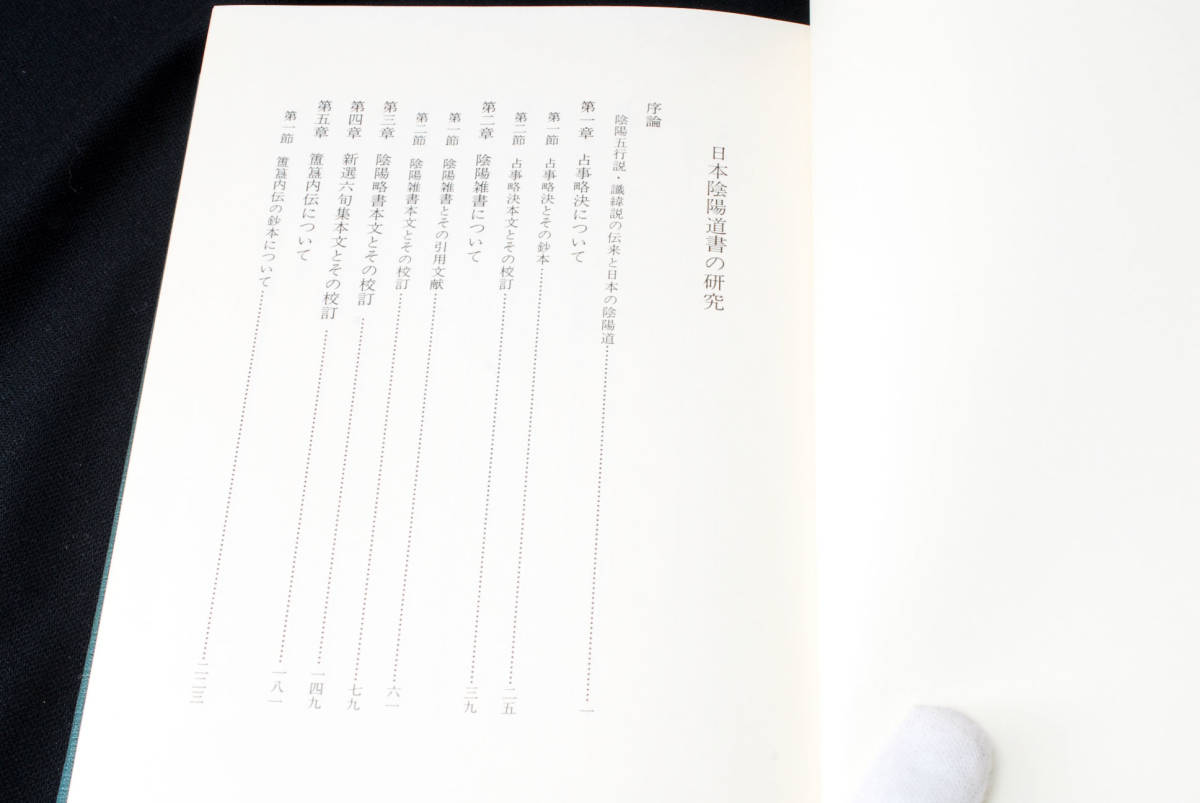 日本陰陽道書の研究
序論
陰陽五行説・讖緯説の伝来と日本の陰陽道……一
第一章 占事略決について
第一節 占事略決とその鈔本……二五
第二節 占事略決本文とその校訂……三九
第二章 陰陽雑書について
第一節 陰陽雑書とその引用文献……六一
第二節 陰陽雑書本文とその校訂……七九
第三章 陰陽略書本文とその校訂……一四九
第四章 新選六旬集本文とその校訂……一八一
第五章 簠簋内伝について
第一節 簠簋内伝の鈔本について……二二三